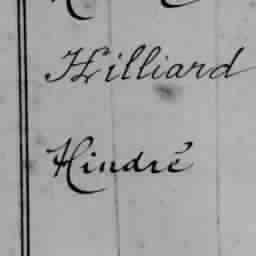 Hilliard
Hindré